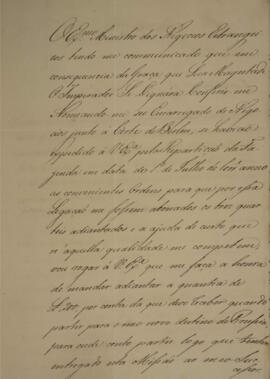 O Exmo Ministro dos Negocios Estrangei
ros tendo me communicado que em
consequencia da Graça que Sua Magestade
O Imperador Se Dignára Conferir me
Nomeando me seu Encarregado de Nego
cios junto á Corte de Berlim, se havia
expedido á V. Exa. pela Repartição da Fa
zenda em data do 1o de Julho do corre anno
as convenientes Ordens para que por essa
Legação me fossem abonados os tres quar
teis adiantados e a ajuda de custo que
n'aquella qualidade me competem,
vou rogar á V. Exa. que me faça a honra
de mandar adiantar a quantia de
por conta do que devo receber quando
partir para o meo novo destino de Prussia
para onde conto partir logo que tenha
entregado esta Missão ao meo Suc
cessor.